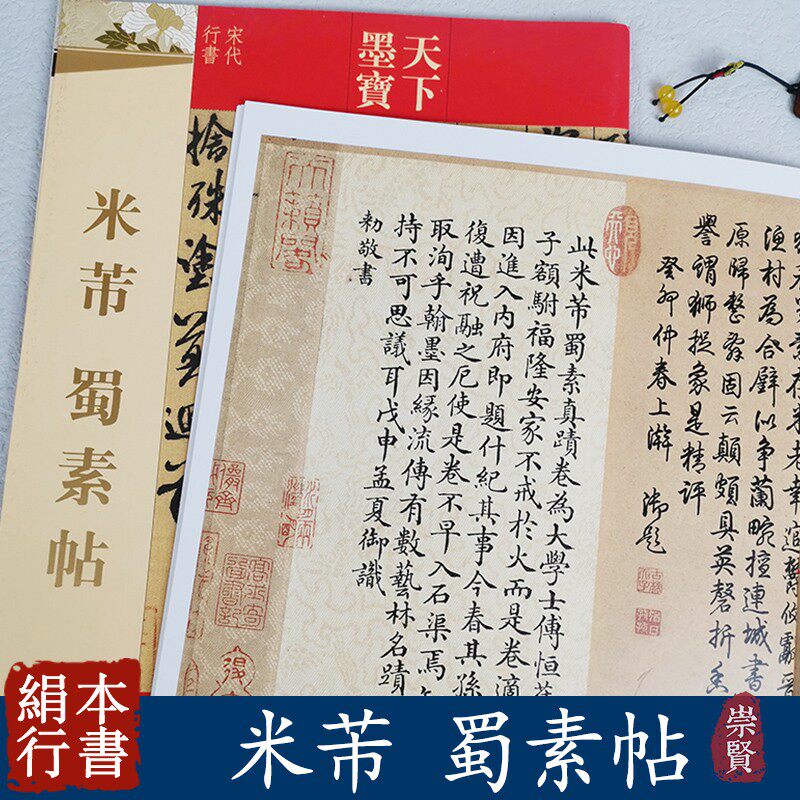 宋代
行書
天下
墨寶
米芾 蜀素帖
漁村為合璧似爭蘭畹擅連城書
固云顛頗具英磬折
譽謂獅捉象是精評
癸卯仲春上澣 御題
此米芾蜀素真蹟卷為大學士傅恒
子額駙福隆安家不戒於火而是卷適
因進入內府即題什紀其事今春其孫
復遭祝融之厄使是卷不早入石渠焉
取洵乎翰墨因緣流傳有數藝林名蹟
持不可思議耳戊申孟夏御識
勅敬書
絹本
行書
米芾 蜀素帖
崇賢